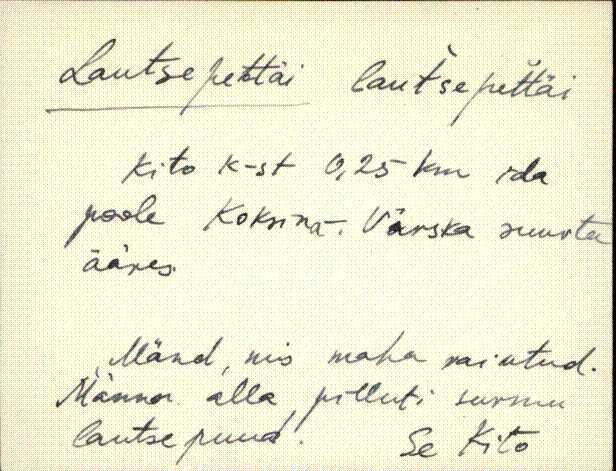 Lautsepettäi lautsepettäi
Kito k-st 0,25 km ida
poole Koksina-Värska suurtee
ääres.
Mänd, mis maha raiutud.
Männi alla pilluti surnu
lautsepuud. Se Kito